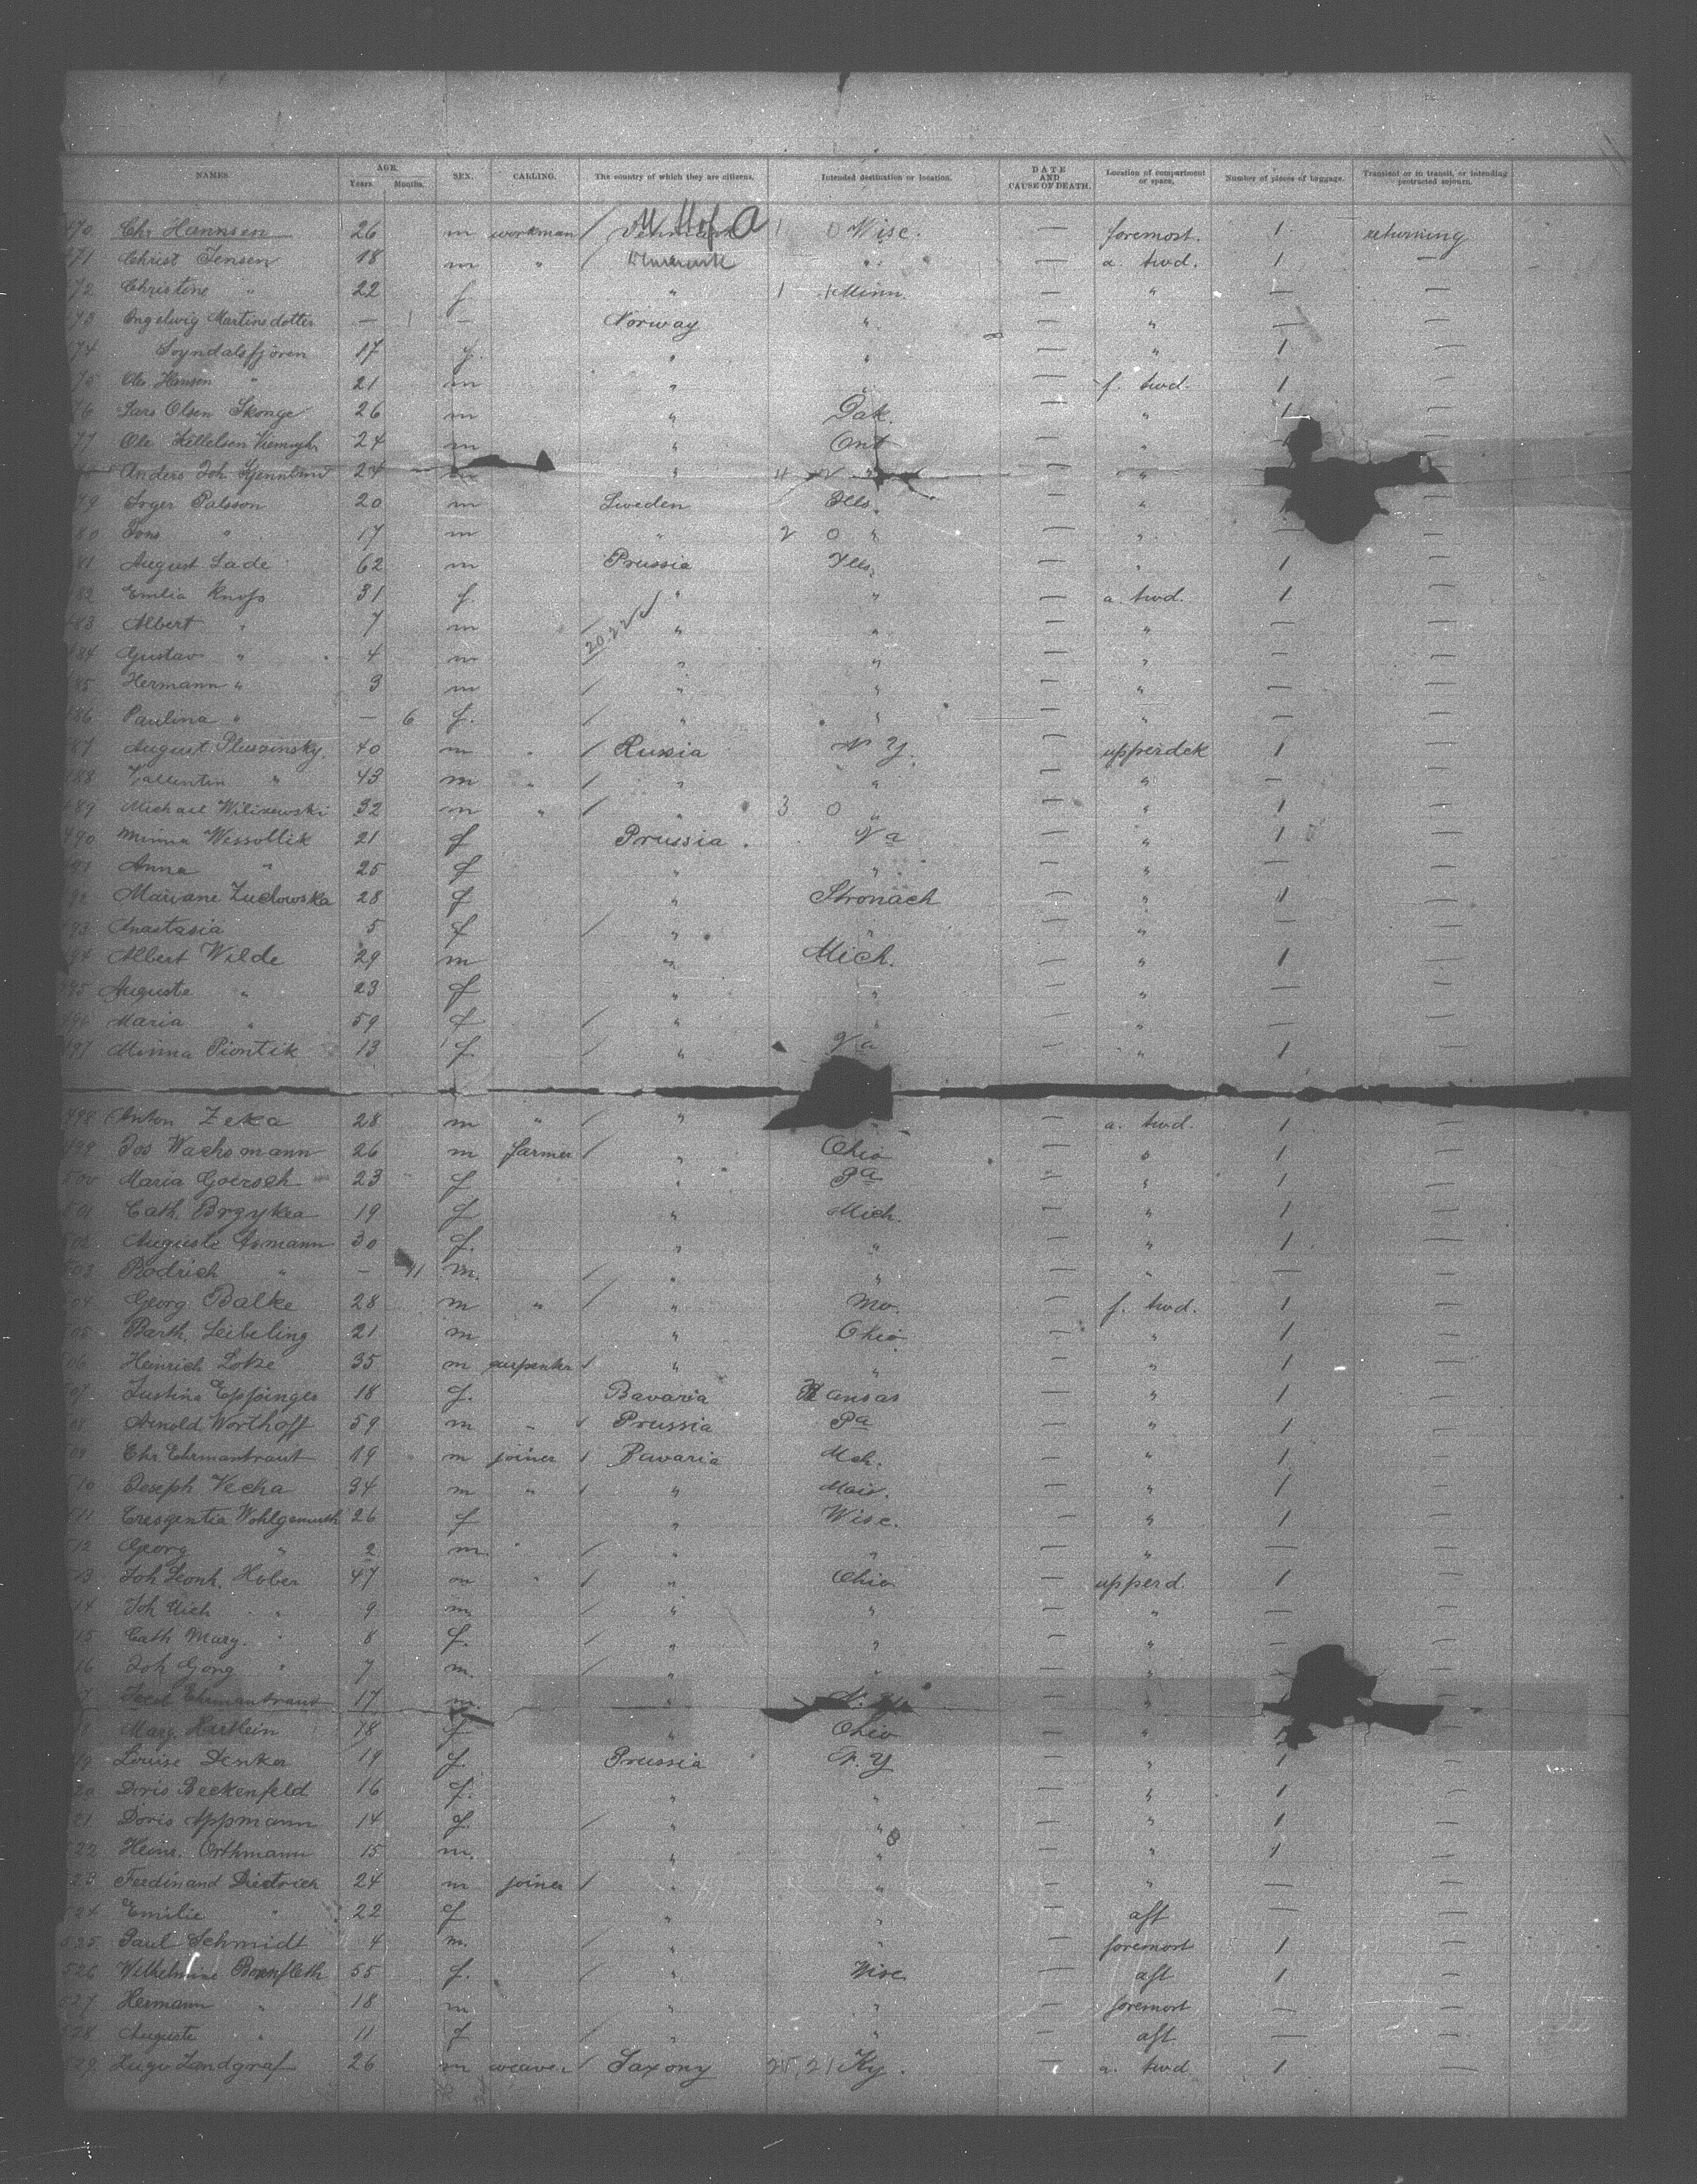 NAMES. AGE. Years. Months. SEX. CALLING. The country of which they are citizens. Intended destination or location. DATE AND CAUSE OF DEATH. Location of compartment or space. Number of pieces of baggage. Transient or in transit, or intending protracted sojourn.
470 Chr Hannsen 26 m workman / 1 0 Wisc. — foremost. 1 returning
471 Christ Jensen 18 m " / Denmark " — a. twd. 1 —
472 Christine " 22 f " 1 1 Minn. — " — —
473 Ingelwig Martinsdotter — — Norway " — " — —
474 Soyndalsfjören 17 f. " " — " 1 —
475 Ole Hansen " 21 m " " — f. twd. 1 —
476 Lars Olsen Skonge 26 m " Dak. — " 1
477 Ole 24 m " Ont — "
Anders Joh. 24 m " "
479 Inger Palsson 20 m Sweden Ills. — "
480 Jons " 17 m " 2 0 " — " — —
481 August Lade 62 m Prussia Ills. — " 1 —
482 Emlia Knofs 31 f. " " — a. twd. 1 —
483 Albert " 7 m / " " — " — —
484 Gustav " 4 m 20.22 " " — " — —
485 Hermann " 3 m / " " — " — —
486 Paulina " — 6 f. / " " — " — —
487 August Plusvinsky. 40 m " / Russia N Y. — upperdek 1 —
488 Vallentin " 43 m " / " " — " — —
489 Michael Wiliszewski 32 m " / " 3 0 " — " 1 —
490 Minna Wessollik 21 f Prussia. Va — " 1 —
491 Anna " 25 f " " — " — —
492 Mariane Zudowska 28 f " Stronach — " 1 —
493 Anastasia 5 f / " " — " — —
494 Albert Wilde 29 m " Mich. — " 1 —
495 Auguste " 23 f " " — " — —
496 Maria " 59 f / " " — " — —
497 Minna Piontik 13 f. / " Va — " 1 —
498 Anton Zeka 28 m " / " — a. twd. 1 —
499 Jos Wachsmann 26 m farmer / " Ohio — " 1 —
500 Maria Goersch 23 f " Pa — " 1 —
501 Cath. Brzykca 19 f " Mich. — " 1 —
502 Auguste Asmann 30 f. " " — " 1 —
503 Rodrich " — 11 m. / " " — " — —
504 Georg Balke 28 m " / " Mo. — f. twd. 1 —
505 Barth. Leibeling 21 m " Ohio — " 1 —
506 Heinrich Lotze 35 m carpenter / " " — " 1 —
507 Justina Eppinger 18 f. Bavaria Kansas — " 1 —
508 Arnold Worthoff 59 m " / Prussia Pa — " 1 —
509 Chr. Ehrmantraut 19 m joiner / Bavaria Mch. — " 1 —
510 Joseph Vecka 34 m " / " — " 1 —
511 Cresgentia Wohlgemuth 26 f " Wisc. — " 1 —
512 Georg " 2 m. / " " — " — —
513 Joh Leonh. Hober 47 m " / " Ohio — upperd. 1 —
514 Joh Mich " 9 m / " " — " — —
515 Cath Marg. " 8 f. / " " — " — —
516 Joh Gorg " 7 m. / " " — "
517 Jacob Ehrmantraut 17 m. " N. Y. "
518 Marg Hartlein 18 f " Ohio "
519 Louise Denker 19 f. Prussia N. Y " 1 —
520 Doris Beckenfeld 16 f. " " — " 1 —
521 Doris Appmann 14 f. / " " — " 1 —
522 Heinr. Orthmann 15 m. " " — " 1 —
523 Ferdinand Dietrich 24 m joiner / " " — " — —
524 Emilie " 22 f " " — aft — —
525 Paul Schmidt 4 m. / " " — foremost 1 —
526 Wilhelmine Bornfleth 55 f. / " Wisc — aft 1 —
527 Hermann " 18 m " " — foremost — —
528 Auguste " 11 f / " " — aft — —
529 Hugo Landgraf 26 m weaver / Saxony 25, 21 Ky. — a. twd 1 —